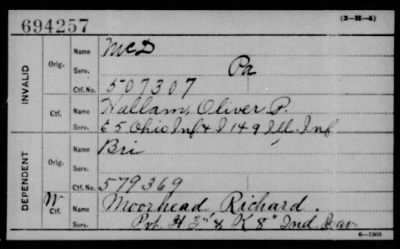 694257
(3—H—5)
INVALID
Orig.
Name McD
Serv. Pa
Ctf. No. 507307
Ctf.
Name Hallam, Oliver P.
Serv. E 5 Ohio Inf & I 149 Ill. Inf
DEPENDENT
Orig.
Name Bri
Serv.
Ctf. No. 579369
W Ctf.
Name Moorhead, Richard.
Serv. Pvt. H 3" & K 8" Ind. Cav.